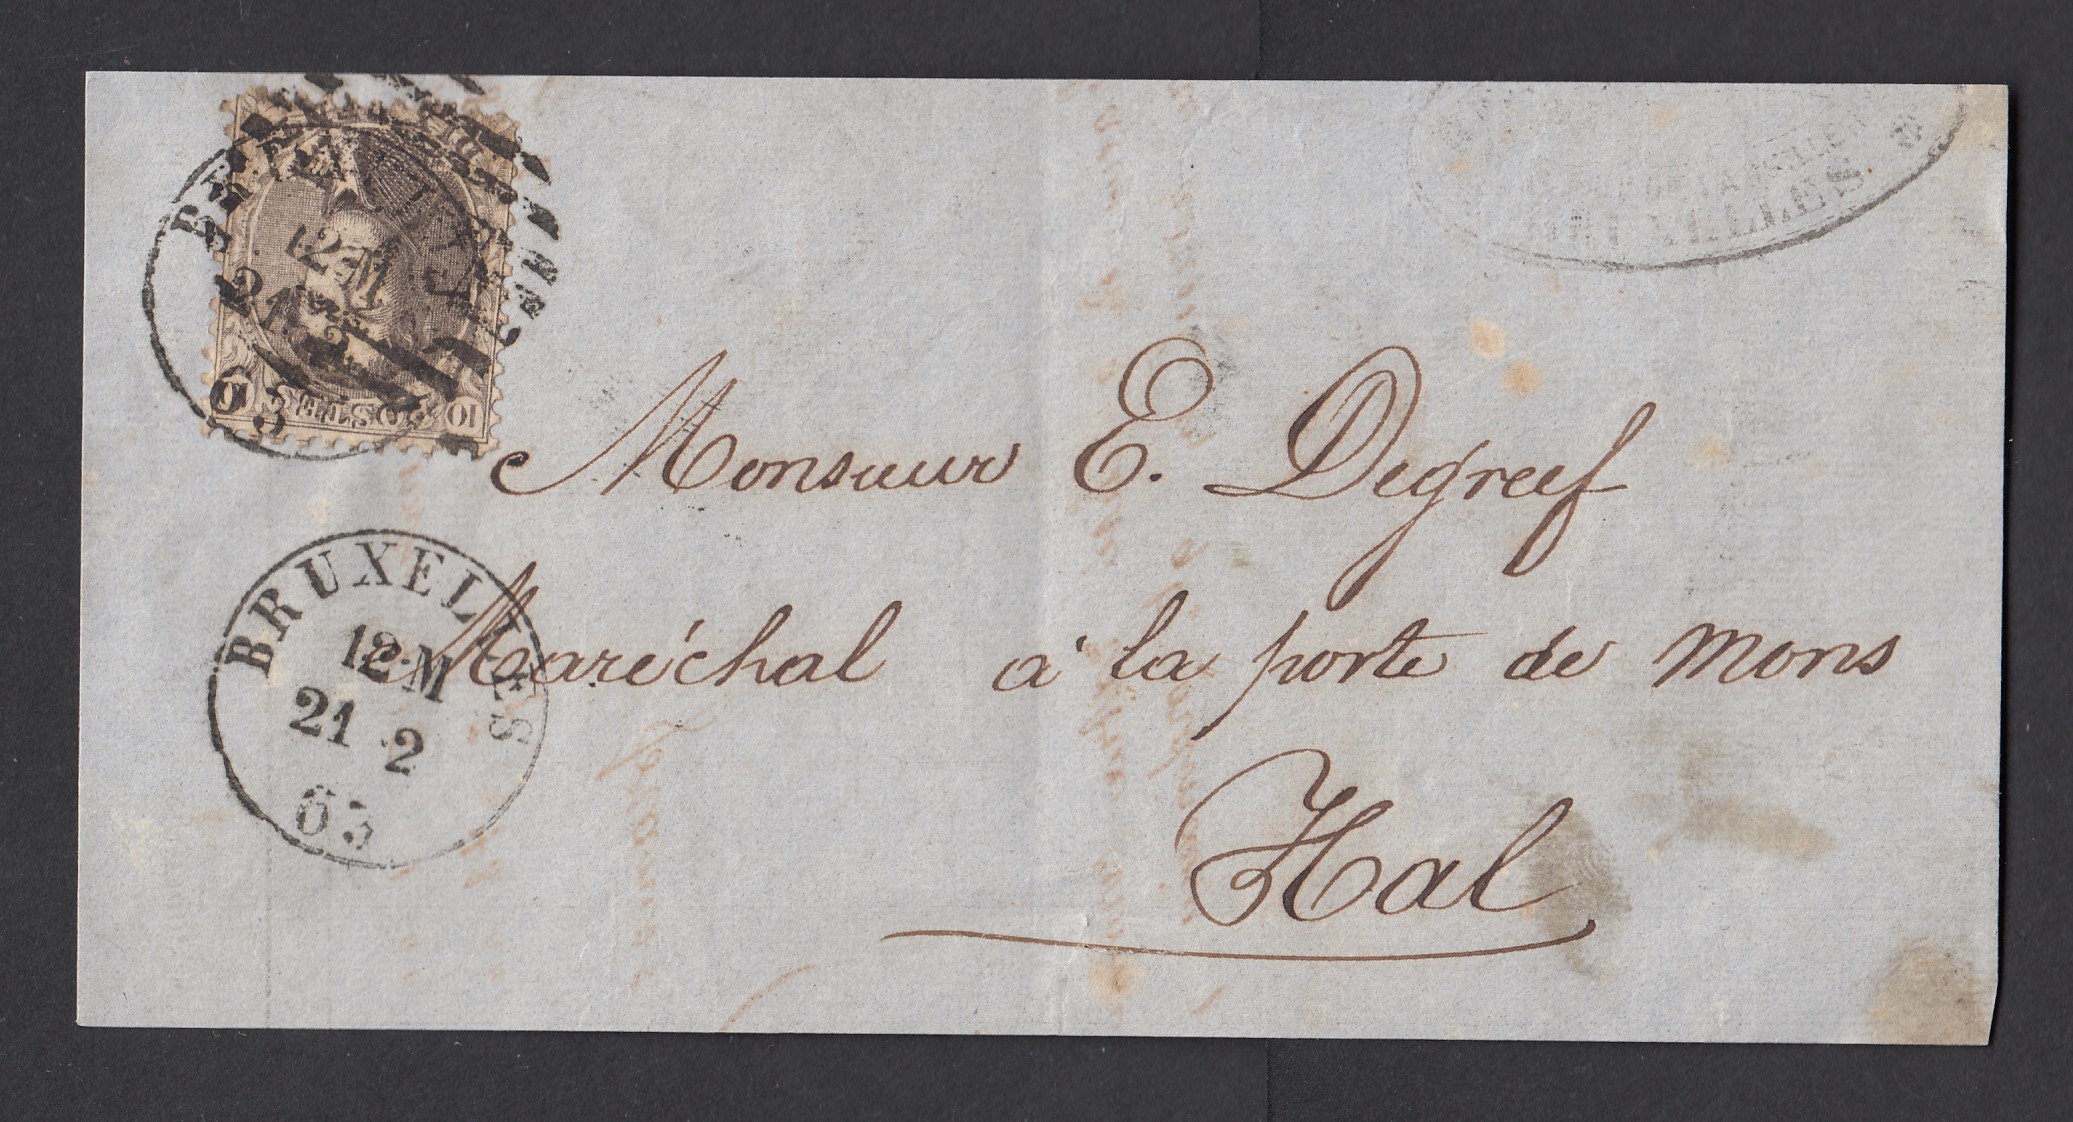 BRUXELLES
12-M
21 2
10 POSTES 10
BRUXELLES
Monsieur E. Degreef
BRUXELLES
12-M
21 2
65
Maréchal à la porte de Mons
Hal